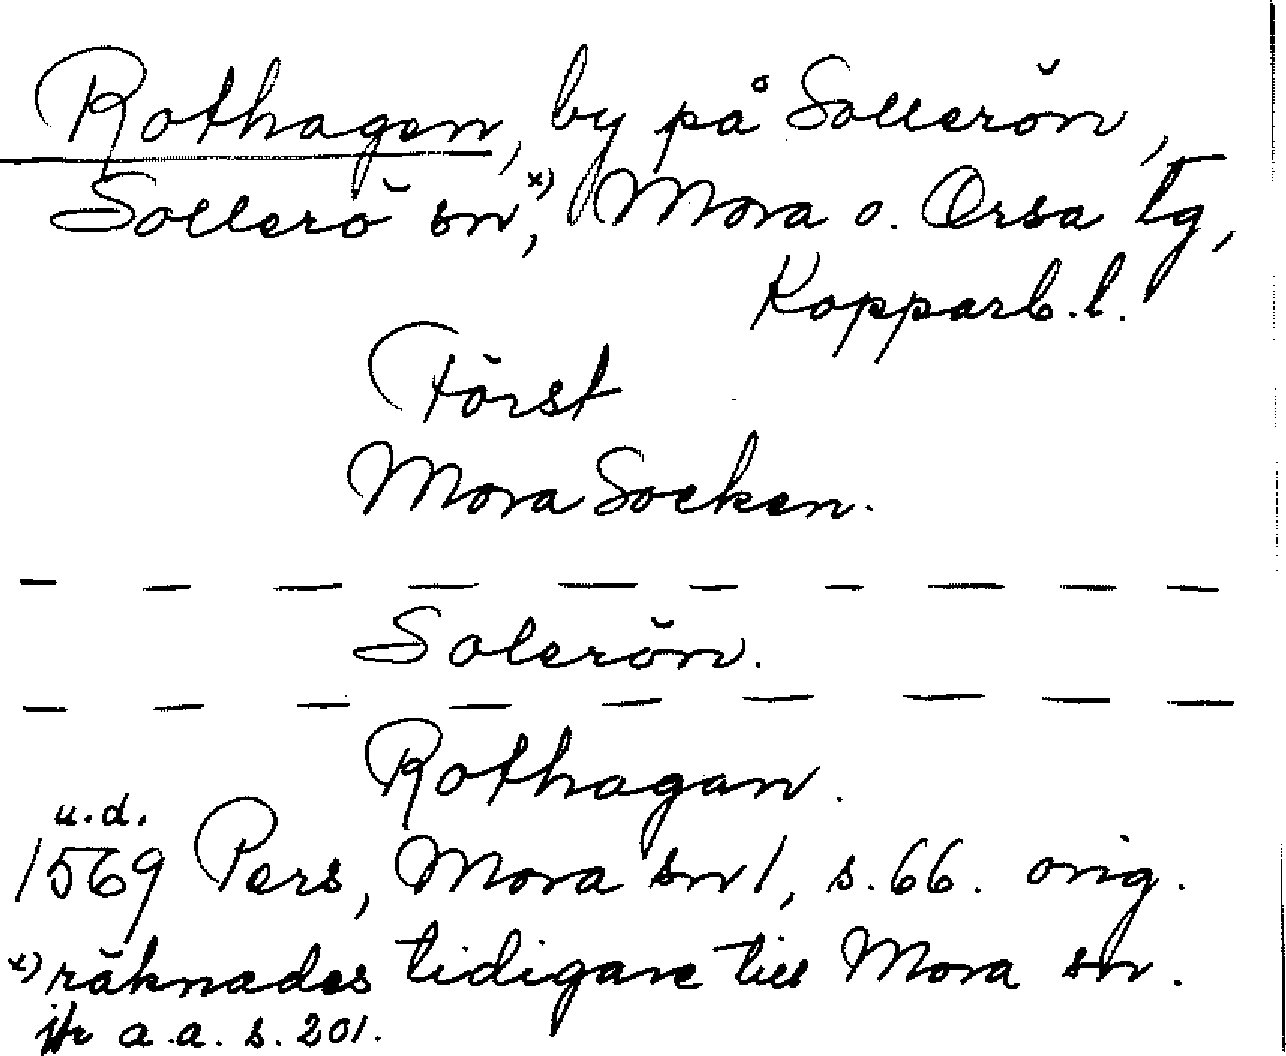 Rothagen, by på Sollerön,
Sollerö sn,x) Mora o. Orsa tg,
Kopparb.l.
Först
Mora Socken.
— — — — — — — — — —
Solerön.
— — — — — — — — — —
Rothagan.
u.d.
1569 Pers, Mora sn 1, s. 66. orig.
x) räknades tidigare till Mora sn.
jfr a.a. s. 201.